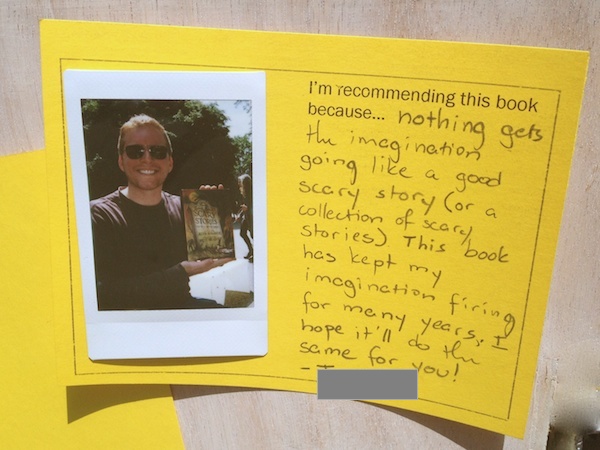 I'm recommending this book
because... nothing gets
the imagination
going like a good
scary story (or a
collection of scary
stories) This book
has kept my
imagination firing
for many years. I
hope it'll do the
same for you!